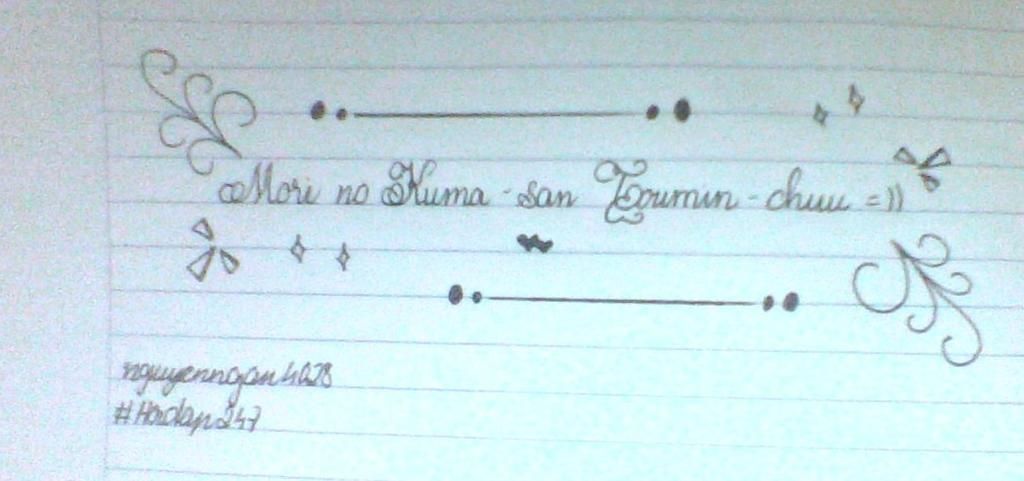 Mori no Kuma-san Toumin-chuu =))
nguyenngan4028
#Hoidap247